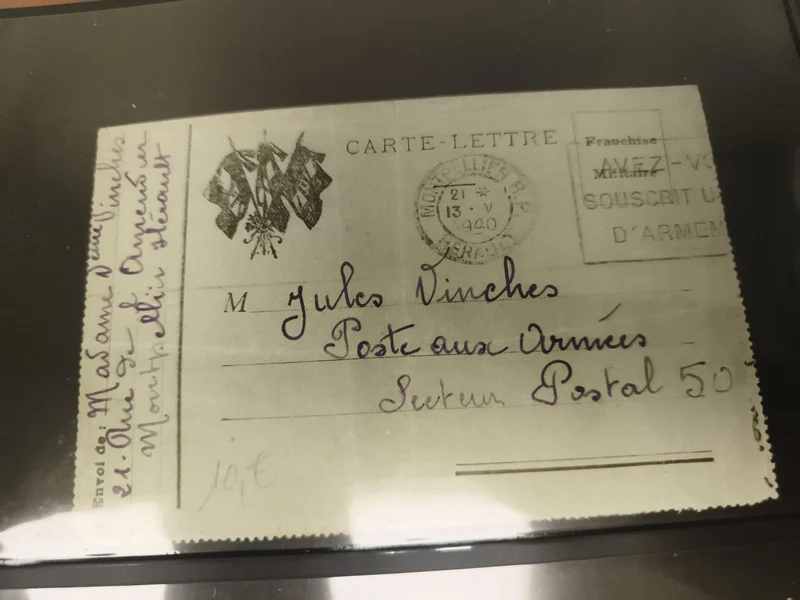 CARTE-LETTRE
Franchise
Militaire
MONTPELLIER R.P.
21 *
13 · V
1940
HERAULT
AVEZ-VO
SOUSCRIT U
D'ARMEM
M Jules Vinches
Poste aux Armées
Secteur Postal 50
Envoi de : Madame Vinches
21. Rue de
Montpellier Hérault
10,€